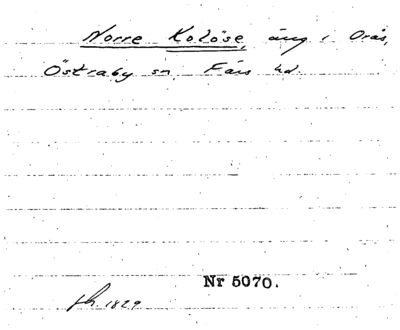 Norre Kolöse, äng i Orås,
Östraby sn. Färs hd.
Nr 5070.
sh. 1829